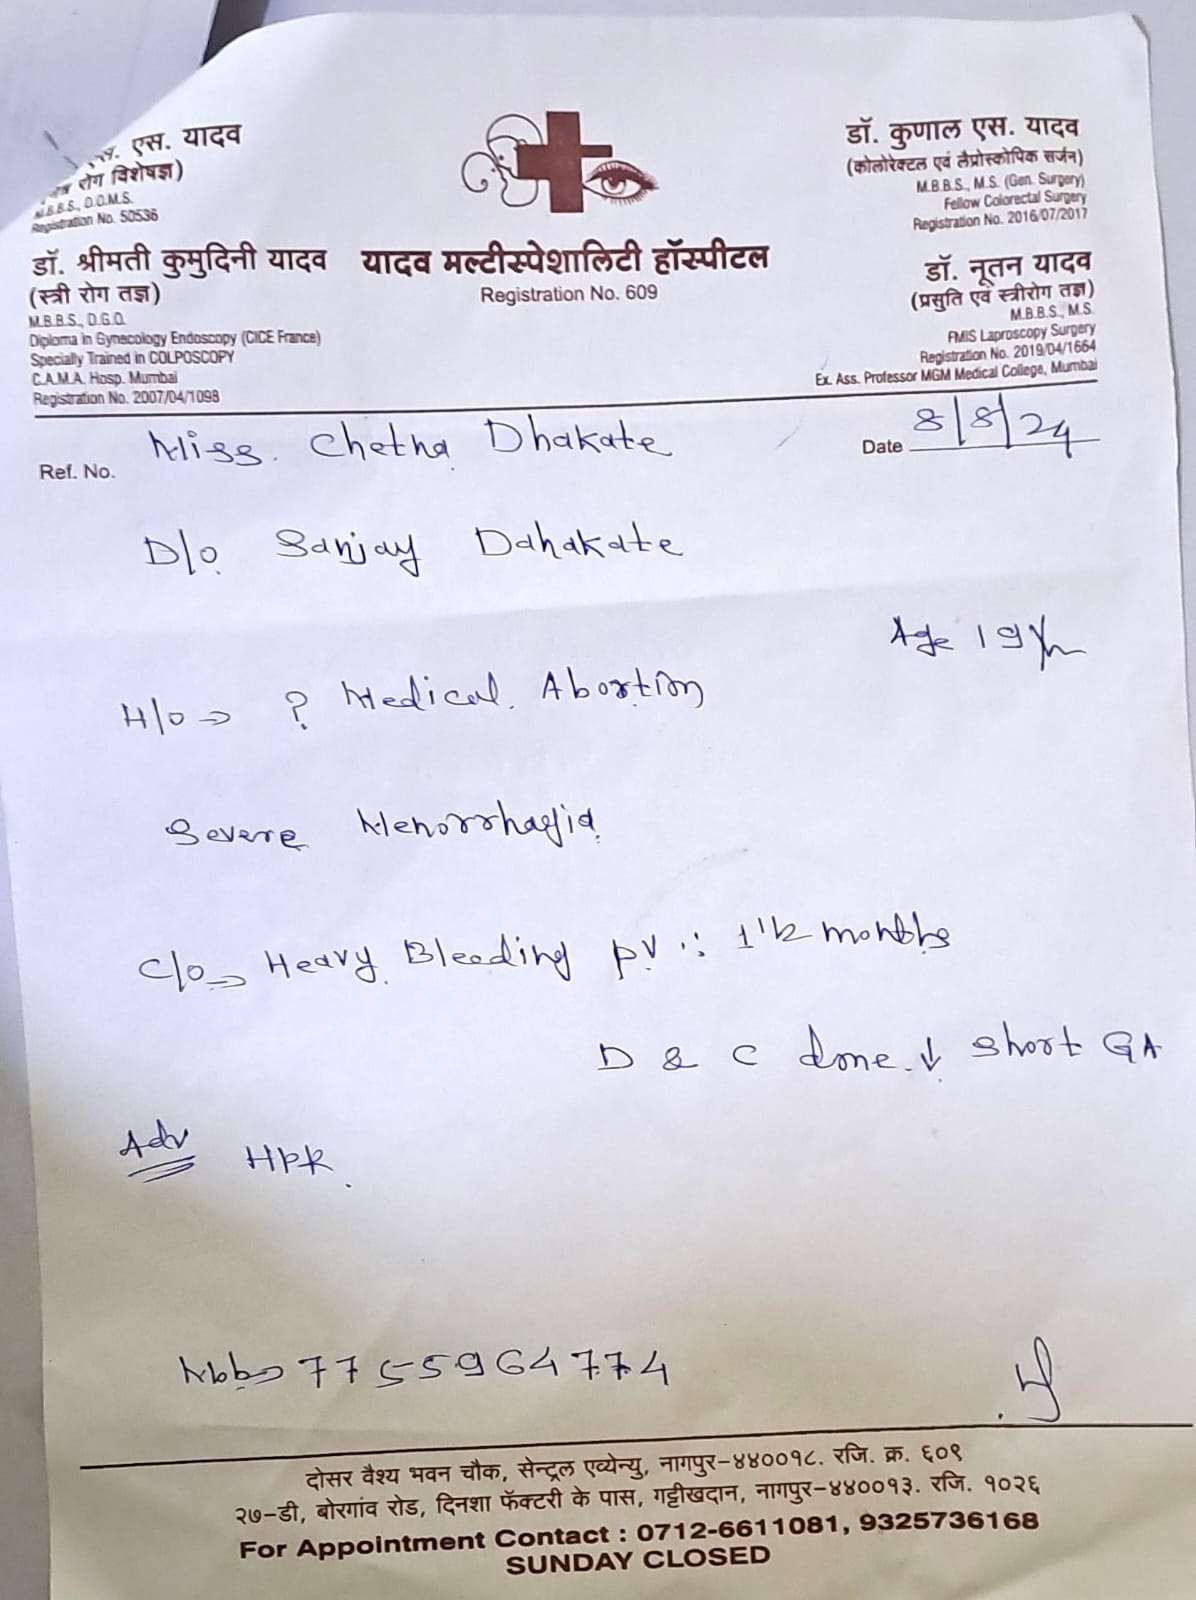 एस. यादव
रोग विशेषज्ञ)
M.B.B.S., D.O.M.S.
Registration No. 50536
डॉ. श्रीमती कुमुदिनी यादव
(स्त्री रोग तज्ञ)
M.B.B.S., D.G.O.
Diploma in Gynecology Endoscopy (CICE France)
Specially Trained in COLPOSCOPY
C.A.M.A. Hosp. Mumbai
Registration No. 2007/04/1098
यादव मल्टीस्पेशालिटी हॉस्पीटल
Registration No. 609
डॉ. कुणाल एस. यादव
(कोलोरेक्टल एवं लॅप्रोस्कोपिक सर्जन)
M.B.B.S., M.S. (Gen. Surgery)
Fellow Colorectal Surgery
Registration No. 2016/07/2017
डॉ. नूतन यादव
(प्रसुति एवं स्त्रीरोग तज्ञ)
M.B.B.S., M.S.
FMIS Laproscopy Surgery
Registration No. 2019/04/1664
Ex. Ass. Professor MGM Medical College, Mumbai
Ref. No. Miss. Chetna Dhakate Date 8/8/24
D/o. Sanjay Dahakate
Age 19
H/o → ? Medical. Abortion
Severe Menorrhagia
C/o → Heavy Bleeding PV ∵ 1 1/2 months
D & C done ↓ short GA
Adv HPR.
7755964774
दोसर वैश्य भवन चौक, सेन्ट्रल एव्येन्यु, नागपुर-४४००१८. रजि. क्र. ६०९
२७-डी, बोरगांव रोड, दिनशा फॅक्टरी के पास, गट्टीखदान, नागपुर-४४००१३. रजि. १०२६
For Appointment Contact : 0712-6611081, 9325736168
SUNDAY CLOSED